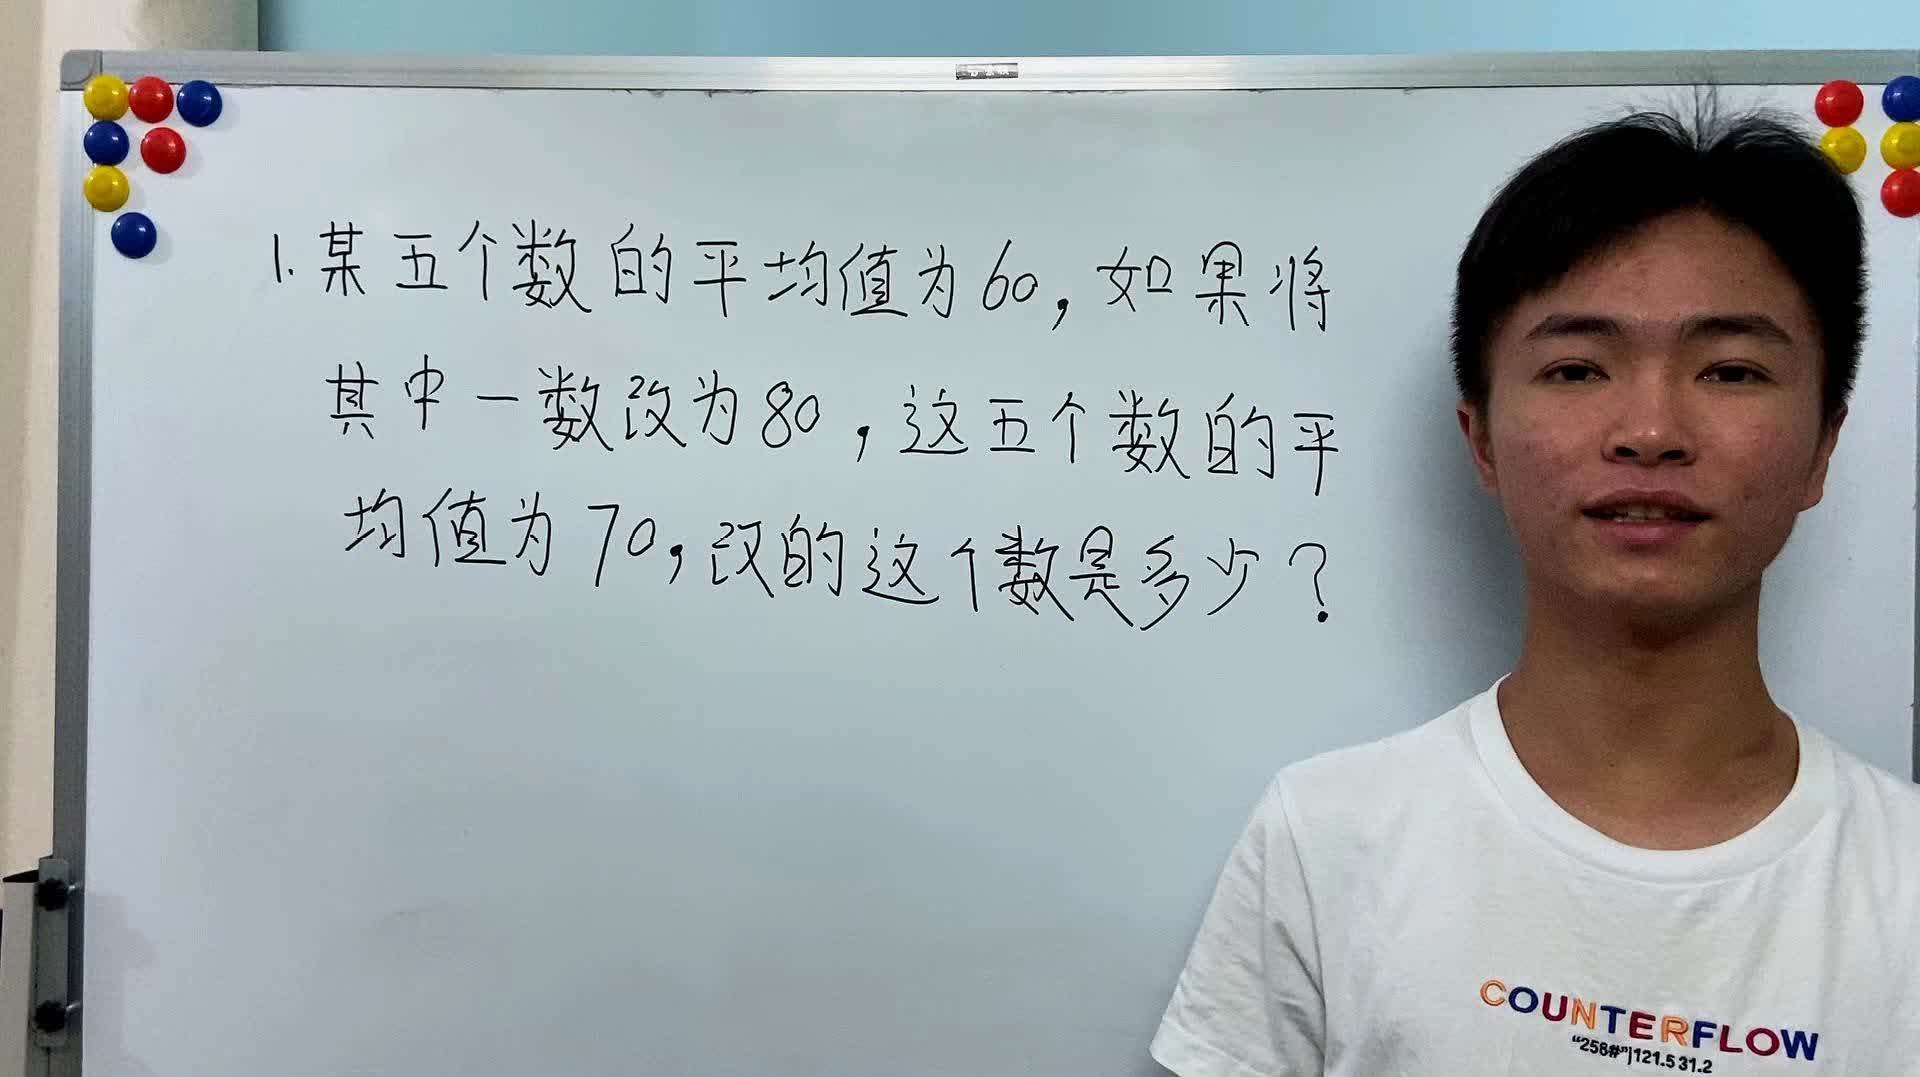 1.某五个数的平均值为60,如果将
其中一数改为80,这五个数的平
均值为70,改的这个数是多少?
COUNTERFLOW
"258#"|121.5 31.2